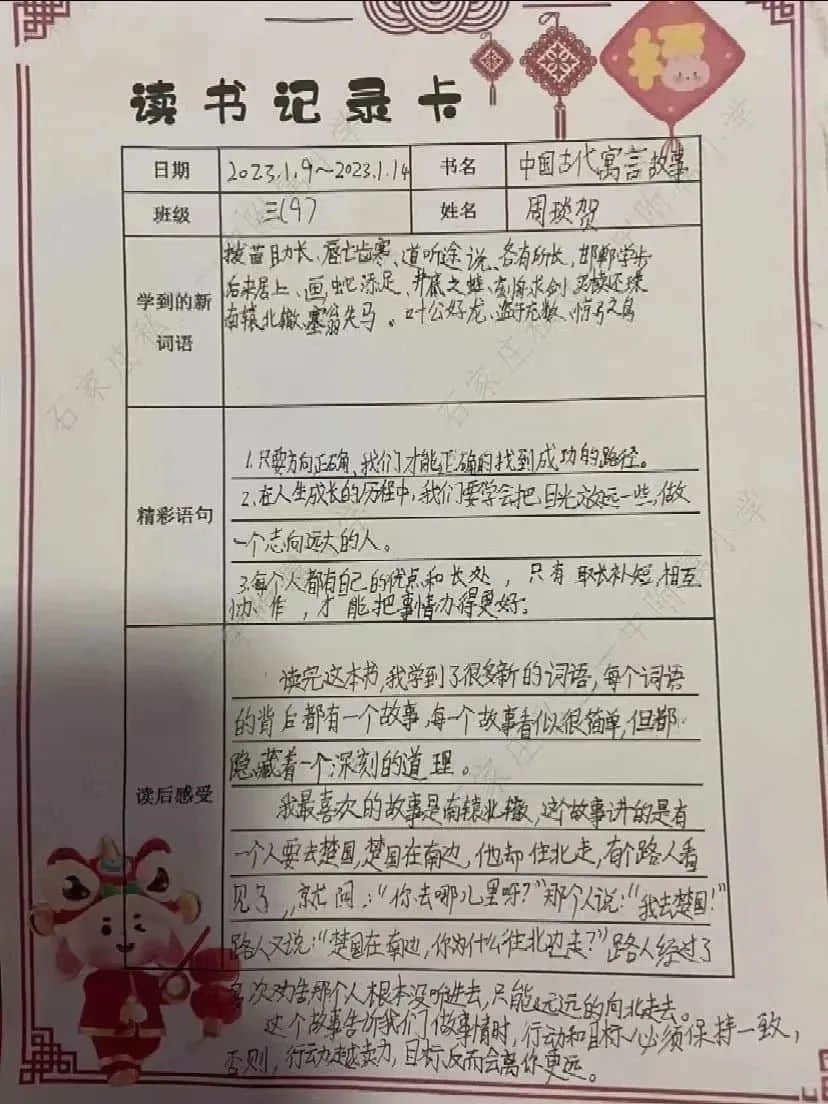 福
读书记录卡
日期 2023.1.9~2023.1.14 书名 中国古代寓言故事
班级 三(9) 姓名 周琰贺
学到的新词语
拔苗助长、唇亡齿寒、道听途说、各有所长、邯郸学步
后来居上、画蛇添足、井底之蛙、刻舟求剑、买椟还珠
南辕北辙、塞翁失马。叶公好龙、滥竽充数、惊弓之鸟
精彩语句
1.只要方向正确,我们才能正确的找到成功的路径。
2.在人生成长的历程中,我们要学会把目光放远一些,做
一个志向远大的人。
3.每个人都有自己的优点和长处,只有取长补短,相互
协作,才能把事情办得更好。
读后感受
读完这本书,我学到了很多新的词语,每个词语
的背后都有一个故事,每一个故事看似很简单,但都
隐藏着一个深刻的道理。
我最喜欢的故事是南辕北辙,这个故事讲的是有
一个人要去楚国,楚国在南边,他却往北走,有个路人看
见了,就问:“你去哪儿里呀?”那个人说:“我去楚国!”
路人又说:“楚国在南边,你为什么往北边走?”路人经过了
多次劝告那个人根本没听进去,只能远远的向北走去。
这个故事告诉我们做事情时,行动和目标必须保持一致,
否则,行动越卖力,目标反而会离你更远。